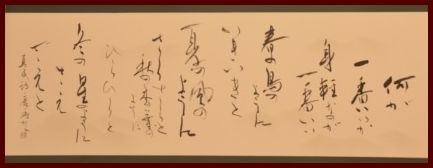 何が
一番いいか
身軽なが
一番いい
春の鳥の
ように
いきいきと
夏の風の
ように
さらさらと
秋の
ように
ひらひらと
冬の星のように
さえ
ざえと